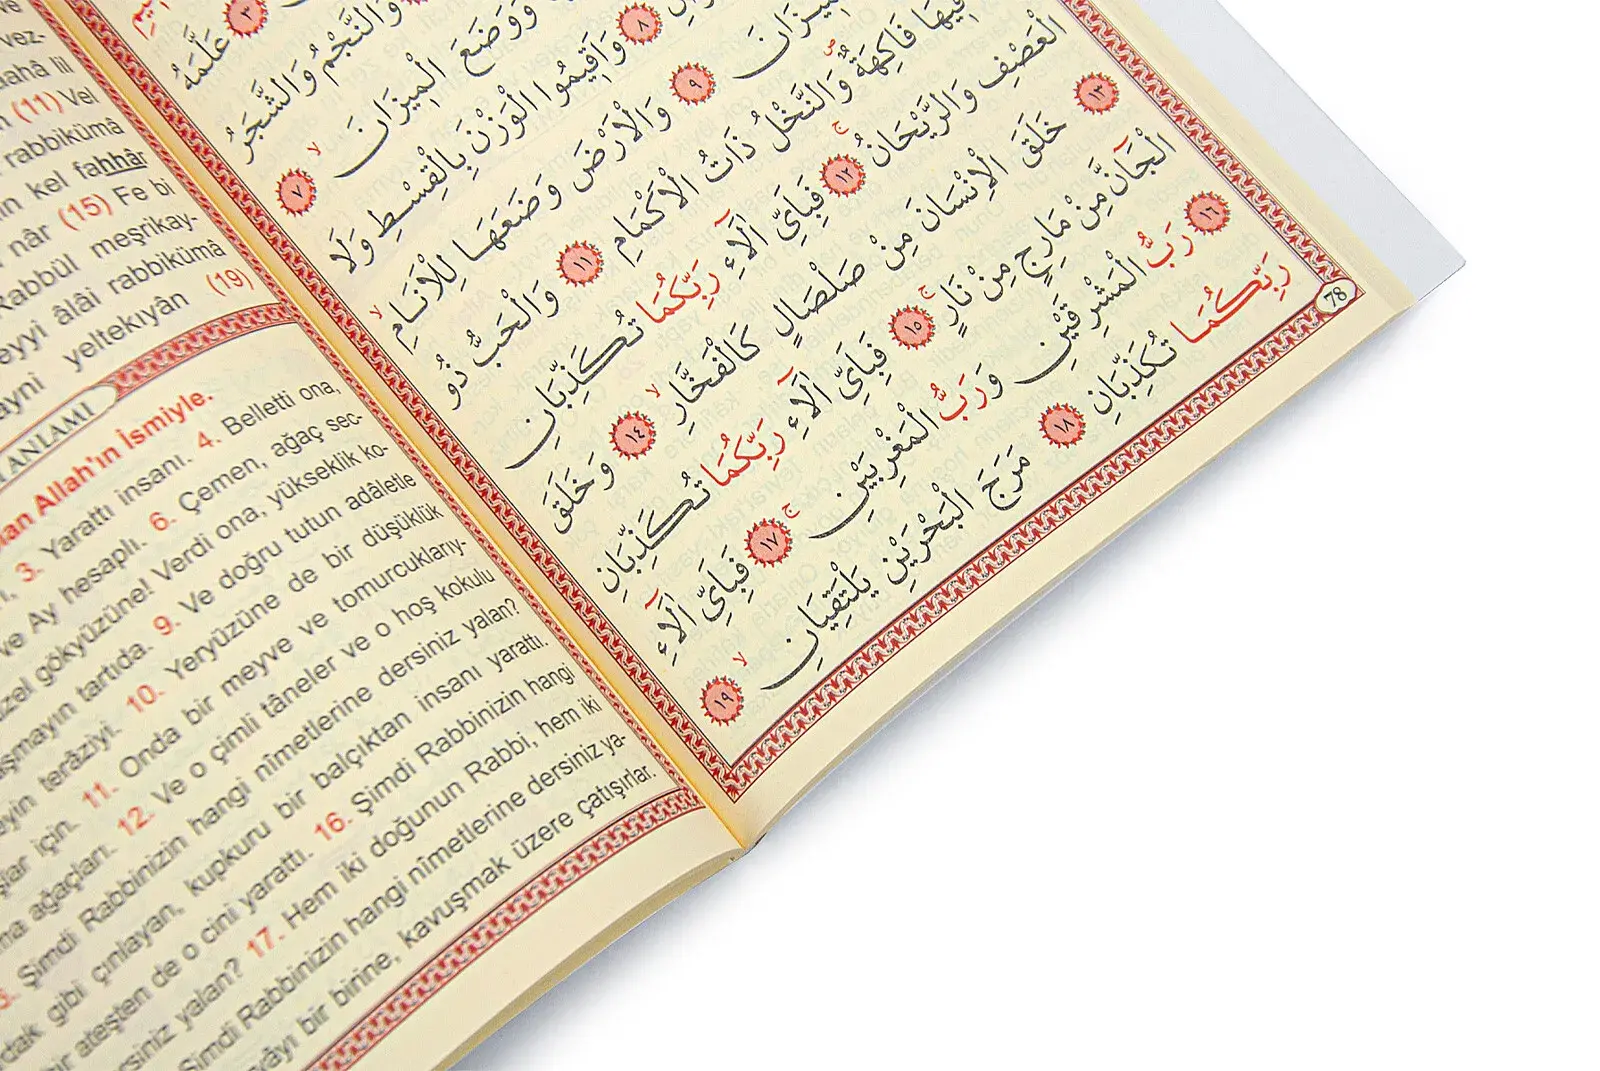 ٣ عَلَّمَهُ
وَالنَّجْمُ وَالشَّجَرُ
وَوَضَعَ الْمِيزَانَ ٧
٨ وَاَقِيمُوا الْوَزْنَ بِالْقِسْطِ وَلَا
٩ وَالْاَرْضَ وَضَعَهَا لِلْاَنَامِ
فِيهَا فَاكِهَةٌ وَالنَّخْلُ ذَاتُ الْاَكْمَامِ ١١ وَالْحَبُّ ذُو
الْعَصْفِ وَالرَّيْحَانُ ١٢ فَبِاَيِّ اٰلَٓاءِ رَبِّكُمَا تُكَذِّبَانِ
١٣ خَلَقَ الْاِنْسَانَ مِنْ صَلْصَالٍ كَالْفَخَّارِ ١٤ وَخَلَقَ
الْجَٓانَّ مِنْ مَارِجٍ مِنْ نَارٍ ١٥ فَبِاَيِّ اٰلَٓاءِ رَبِّكُمَا تُكَذِّبَانِ
١٦ رَبُّ الْمَشْرِقَيْنِ وَرَبُّ الْمَغْرِبَيْنِ ١٧ فَبِاَيِّ اٰلَٓاءِ
رَبِّكُمَا تُكَذِّبَانِ ١٨ مَرَجَ الْبَحْرَيْنِ يَلْتَقِيَانِ ١٩
78
lil
(11) Vel
rabbikümâ
kel fahhâr
nâr (15) Fe bi
Rabbül meşrikay-
âlâi rabbikümâ
yeltekıyân (19)
ANLAMI
Allah'ın İsmiyle.
3. Yarattı insanı. 4. Belletti ona,
ve Ay hesaplı. 6. Çemen, ağaç sec-
gökyüzüne! Verdi ona, yükseklik ko-
tartıda. 9. Ve doğru tutun adâletle
terâziyi. 10. Yeryüzüne de bir düşüklük
için. 11. Onda bir meyve ve tomurcuklarıy-
ağaçları. 12. Ve o çimli tâneler ve o hoş kokulu
Şimdi Rabbinizin hangi nîmetlerine dersiniz yalan?
gibi çınlayan, kupkuru bir balçıktan insanı yarattı.
ateşten de o cini yarattı. 16. Şimdi Rabbinizin hangi
yalan? 17. Hem iki doğunun Rabbi, hem iki
Şimdi Rabbinizin hangi nîmetlerine dersiniz ya-
bir birine, kavuşmak üzere çatışırlar.